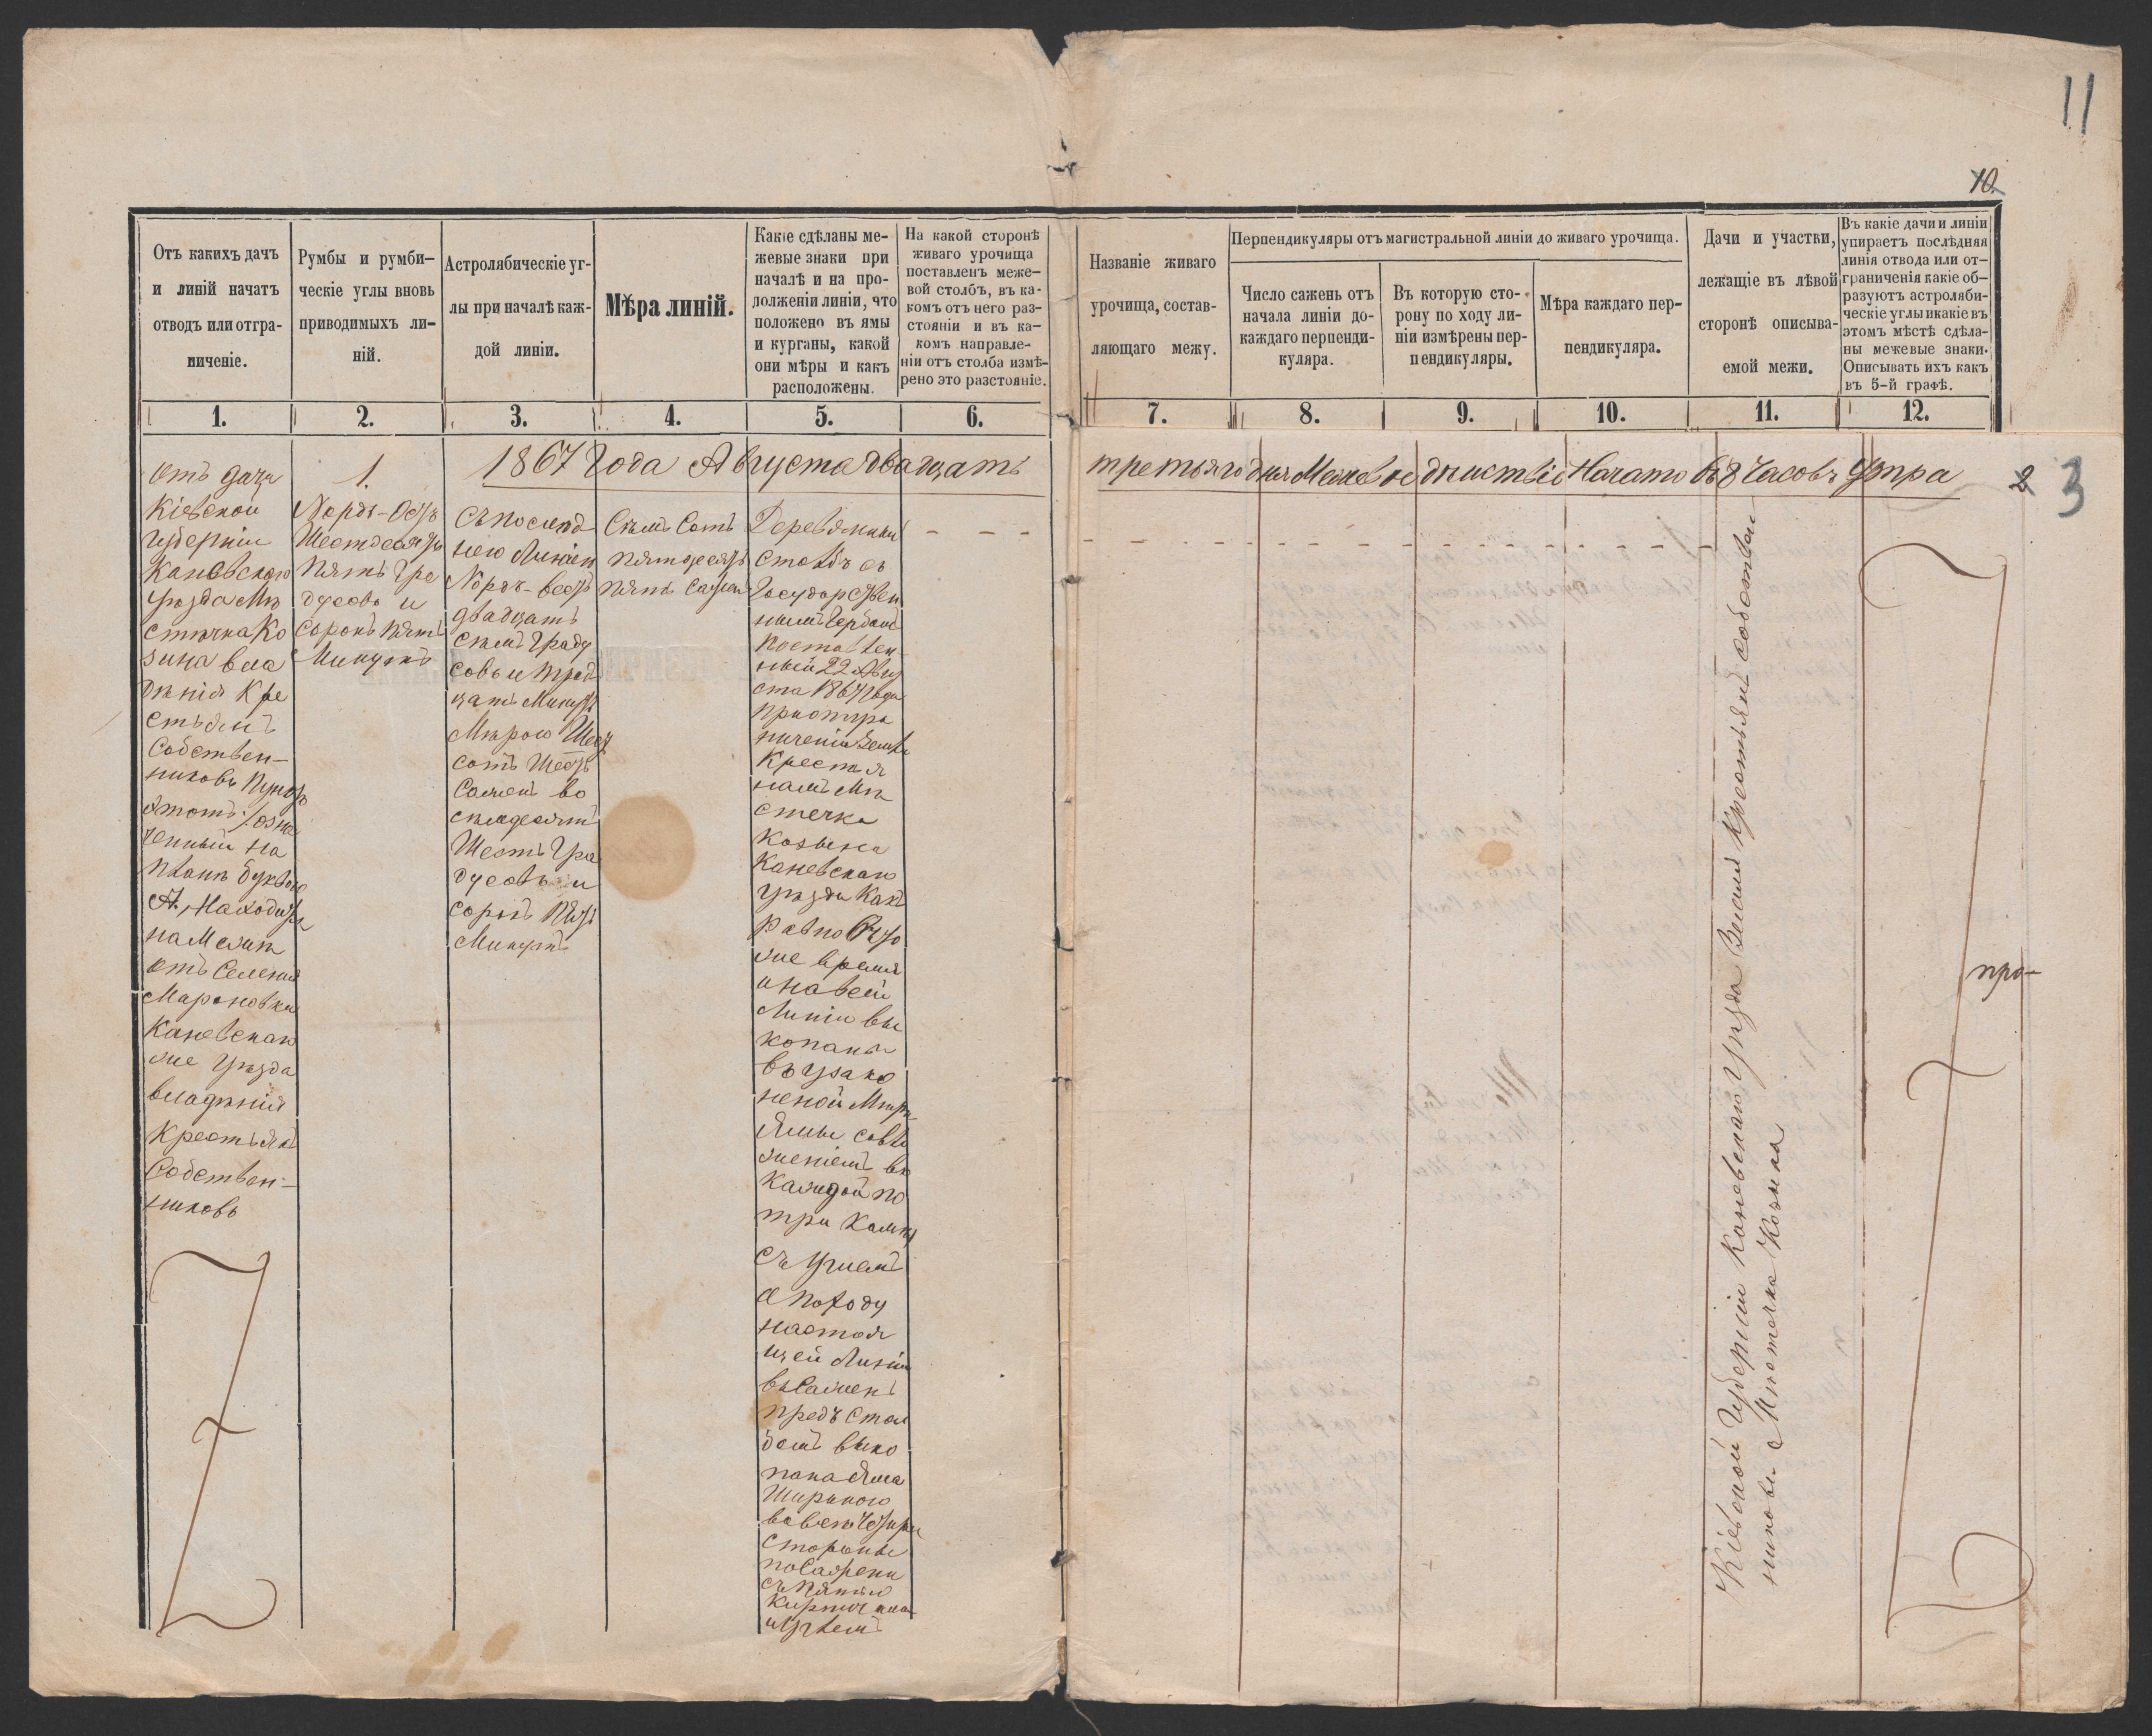 11
10.
Отъ какихъ дачъ
и линій начатъ
отводъ или отгра-
ниченіе.
Румбы и румби-
ческіе углы вновь
приводимыхъ ли-
ній.
Астролябическіе уг-
лы при началѣ каж-
дой линіи.
Мѣра линій.
Какіе сдѣланы ме-
жевые знаки при
началѣ и на про-
долженіи линіи, что
положено въ ямы
и курганы, какой
они мѣры и какъ
расположены.
На какой сторонѣ
живаго урочища
поставленъ меже-
вой столбъ, въ ка-
комъ отъ него раз-
стояніи и въ ка-
комъ направле-
ніи отъ столба измѣ-
рено это разстояніе.
Названіе живаго
урочища, состав-
ляющаго межу.
Перпендикуляры отъ магистральной линіи до живаго урочища.
Число сажень отъ
начала линіи до-
каждаго перпенди-
куляра.
Въ которую сто-
рону по ходу ли-
ніи измѣрены пер-
пендикуляры.
Мѣра каждаго пер-
пендикуляра.
Дачи и участки,
лежащіе въ лѣвой
сторонѣ описыва-
емой межи.
Въ какіе дачи и линіи
упираетъ послѣдняя
линія отвода или от-
граниченія какіе об-
разуютъ астроляби-
ческіе углы икакіе въ
этомъ мѣстѣ сдѣла-
ны межевые знаки.
Описывать ихъ какъ
въ 5-й графѣ.
1. 2. 3. 4. 5. 6. 7. 8. 9. 10. 11. 12.
1867 Года Августа двадцать третьяго дня Межевое дѣйствіе Начато въ 8 Часовъ Утра
2 3
отъ дачи
Кіевской
Губерніи
Каневскаго
Уѣзда Мѣ
стечка Ко
зина вла
дѣнія Кре
стьянъ
Собствен-
никовъ Пунктъ
этотъ
ченный на
Планѣ буквою
А. Находится
на Межѣ
отъ Селенія
Мароновки
Каневскаго
же Уѣзда
владѣнія
Крестьянъ
Собствен-
никовъ
1.
Nордъ-Остъ
Шестдесятъ
Пять Гра
дусовъ и
Сорокъ Пять
Минутъ
Съ послѣд
нею Линіею
Nордъ-Вестъ
двадцать
семь Граду
совъ и Трид
цать Минутъ
Мѣрою Шесть
сотъ Шесть
Сажень во
семдесятъ
Шесть Гра
дусовъ и
Сорокъ Пять
Минутъ
Семь Сотъ
Пятдесятъ
Пять Сажень
Деревянный
Столбъ съ
Государствен
нымъ Гербомъ
Поставлен
ный 22 Авгу
ста 1867 года
при отгра
ниченіи Земли
Крестья
намъ Мѣ
стечка
Козина
Каневскаго
Уѣзда Какъ
Равно въ то
же время
и на всей
Линіи вы
копаны
въ узако
неной Мѣрѣ
Ямы съ вло
женіемъ въ
Каждой по
три Камня
съ Углемъ
а по ходу
настоя
щей Линіи
въ Сажень
предъ Стол
бомъ выко
пана Яма
Шириною
во всѣ четыре
Стороны
по Сажени
съ Пятью
Кирпичами
и Углемъ
Кіевской Губерніи Каневскаго Уѣзда Земли Крестьянъ Собствен
никовъ Мѣстечка Козина
про-